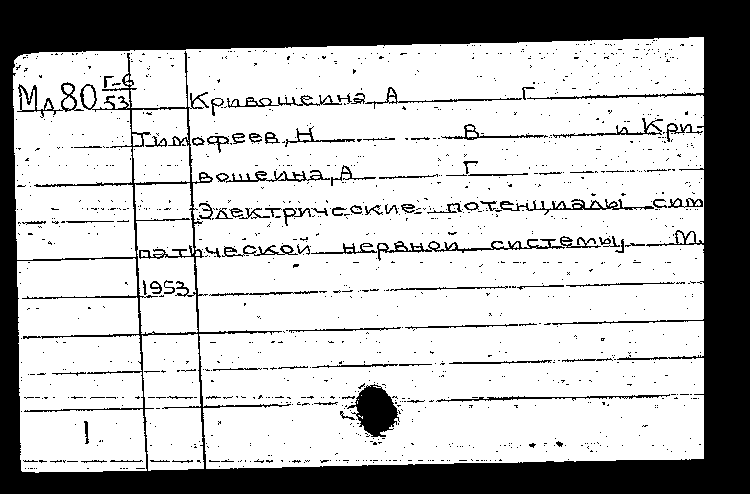 Мд80 Г-6
53 Кривошеина, А Г
Тимофеев, Н В и Кри-
вошеина, А Г
Электрические потенциалы сим
патической нервной системы М.
1953.
1